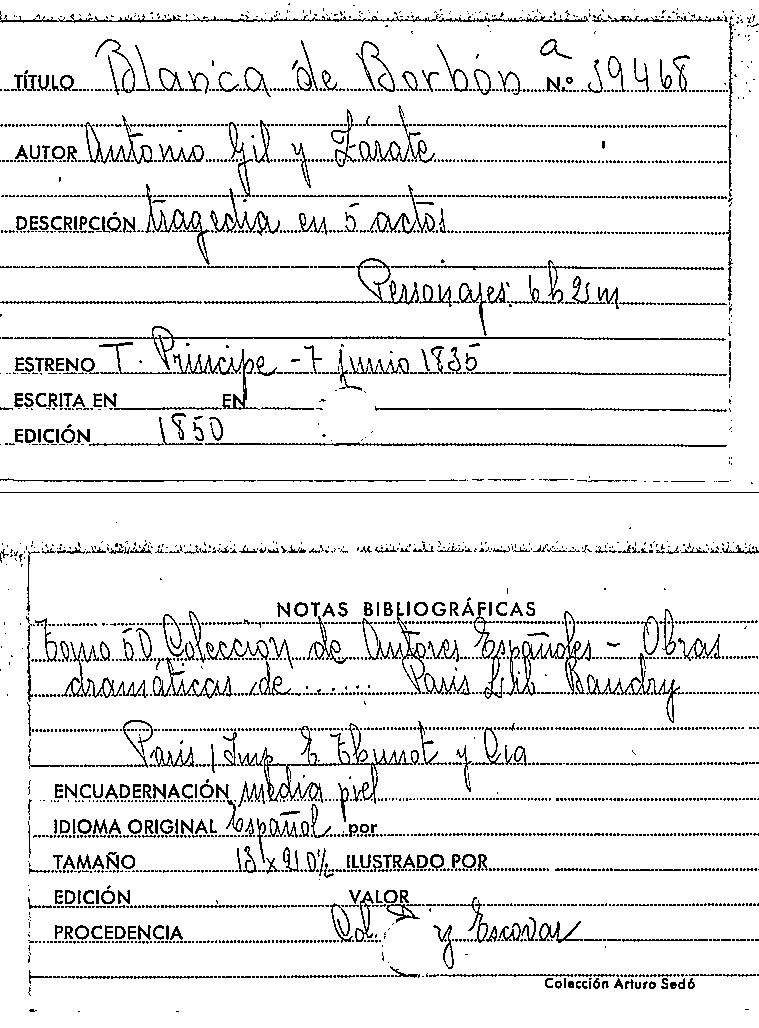 TÍTULO Blanca de Borbón a N.º 59468
AUTOR Antonio Gil y Zárate
DESCRIPCIÓN tragedia en 5 actos
Personajes. 6 h 2 m
ESTRENO T. Principe - 7 junio 1835
ESCRITA EN EN
EDICIÓN 1850
NOTAS BIBLIOGRÁFICAS
Tomo 50 Colección de Autores Españoles - Obras
dramáticas de ...... Paris Lib. Baudry
Paris / Imp E Thunot y Cia
ENCUADERNACIÓN media piel
IDIOMA ORIGINAL Español por
TAMAÑO ILUSTRADO POR
EDICIÓN VALOR
PROCEDENCIA Col. y Escovar
Colección Arturo Sedó